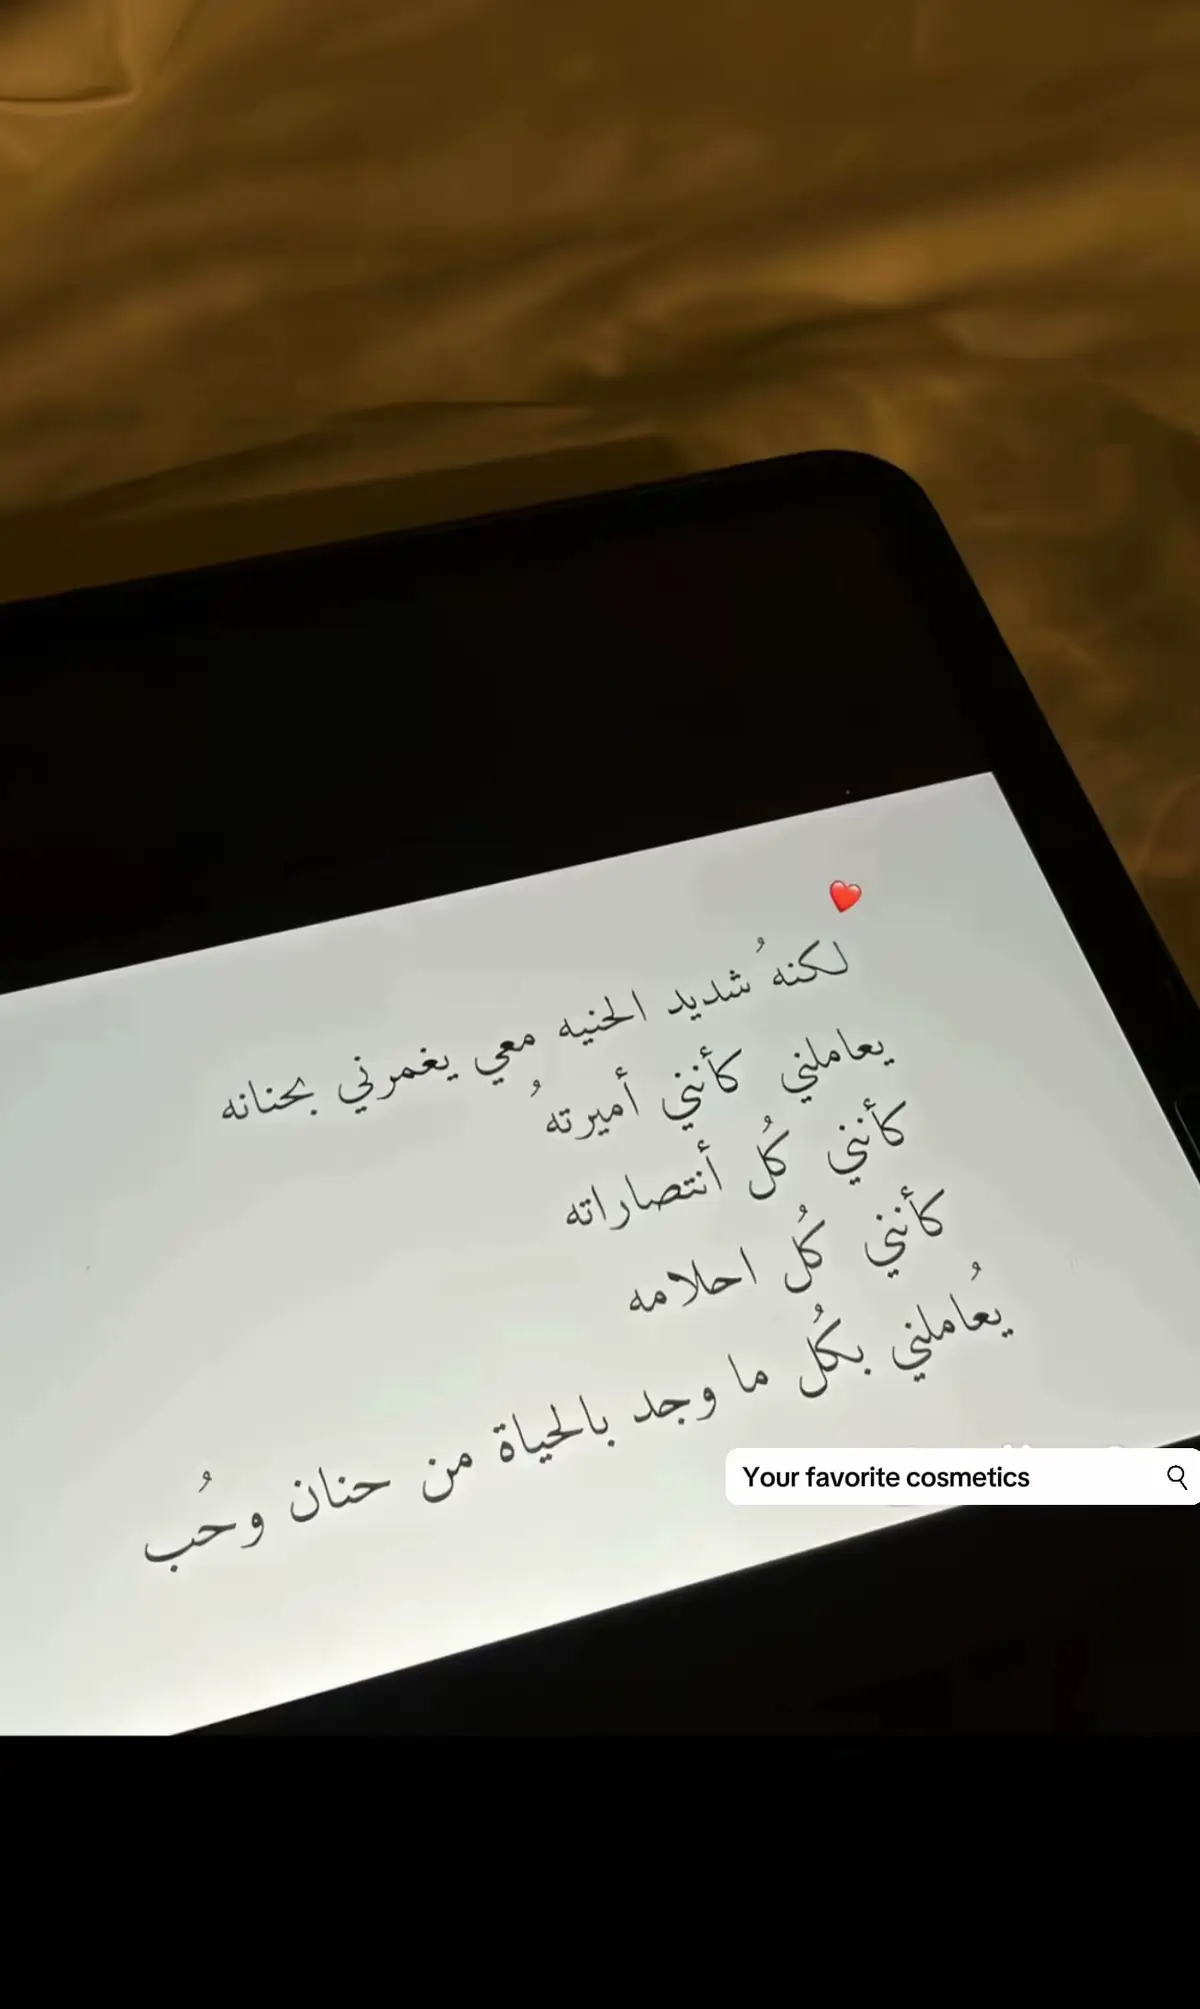 ❤️
لكنهُ شديد الحنيه معي يغمرني بحنانه
يعاملني كأنني أميرتهُ
كأنني كُل أنتصاراته
كأنني كُل احلامه
يُعاملني بكُل ما وجد بالحياة من حنان وحُب
Your favorite cosmetics